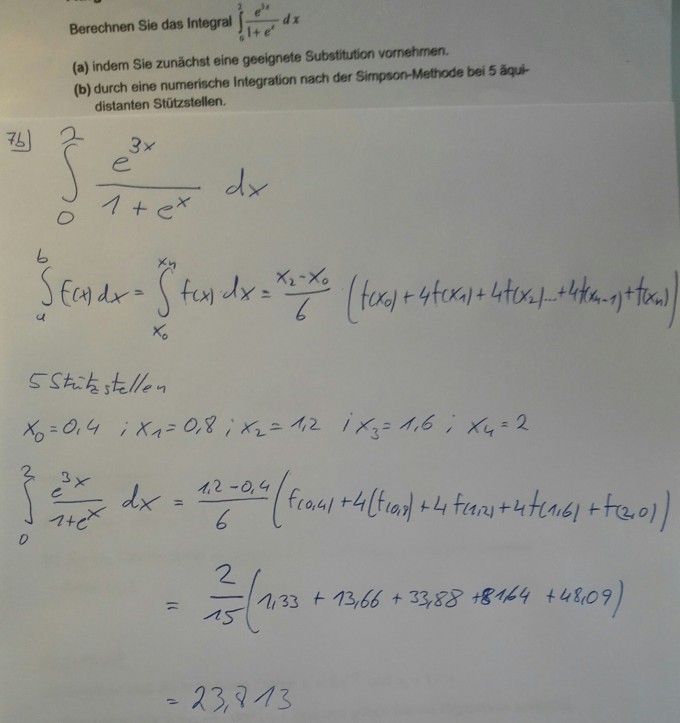 Berechnen Sie das Integral ∫₀² e^{3x}/(1+e^x) dx
(a) indem Sie zunächst eine geeignete Substitution vornehmen.
(b) durch eine numerische Integration nach der Simpson-Methode bei 5 äqui-
distanten Stützstellen.
7b) ∫₀² e^{3x}/(1+e^x) dx
∫ₐᵇ f(x) dx = ∫_{x₀}^{x₄} f(x)·dx = (x₂-x₀)/6 (f(x₀)+4f(x₁)+4f(x₂)...+4f(x_{n-1})+f(x_n))
5 Stützstellen
x₀=0,4 ; x₁=0,8 ; x₂=1,2 ; x₃=1,6 ; x₄=2
∫₀² e^{3x}/(1+e^x) dx = (1,2-0,4)/6 (f(0,4)+4(f(0,8)+4f(1,2)+4f(1,6)+f(2,0))
= 2/15 (1,33 + 13,66 + 33,88 + 81,64 + 48,09)
= 23,813